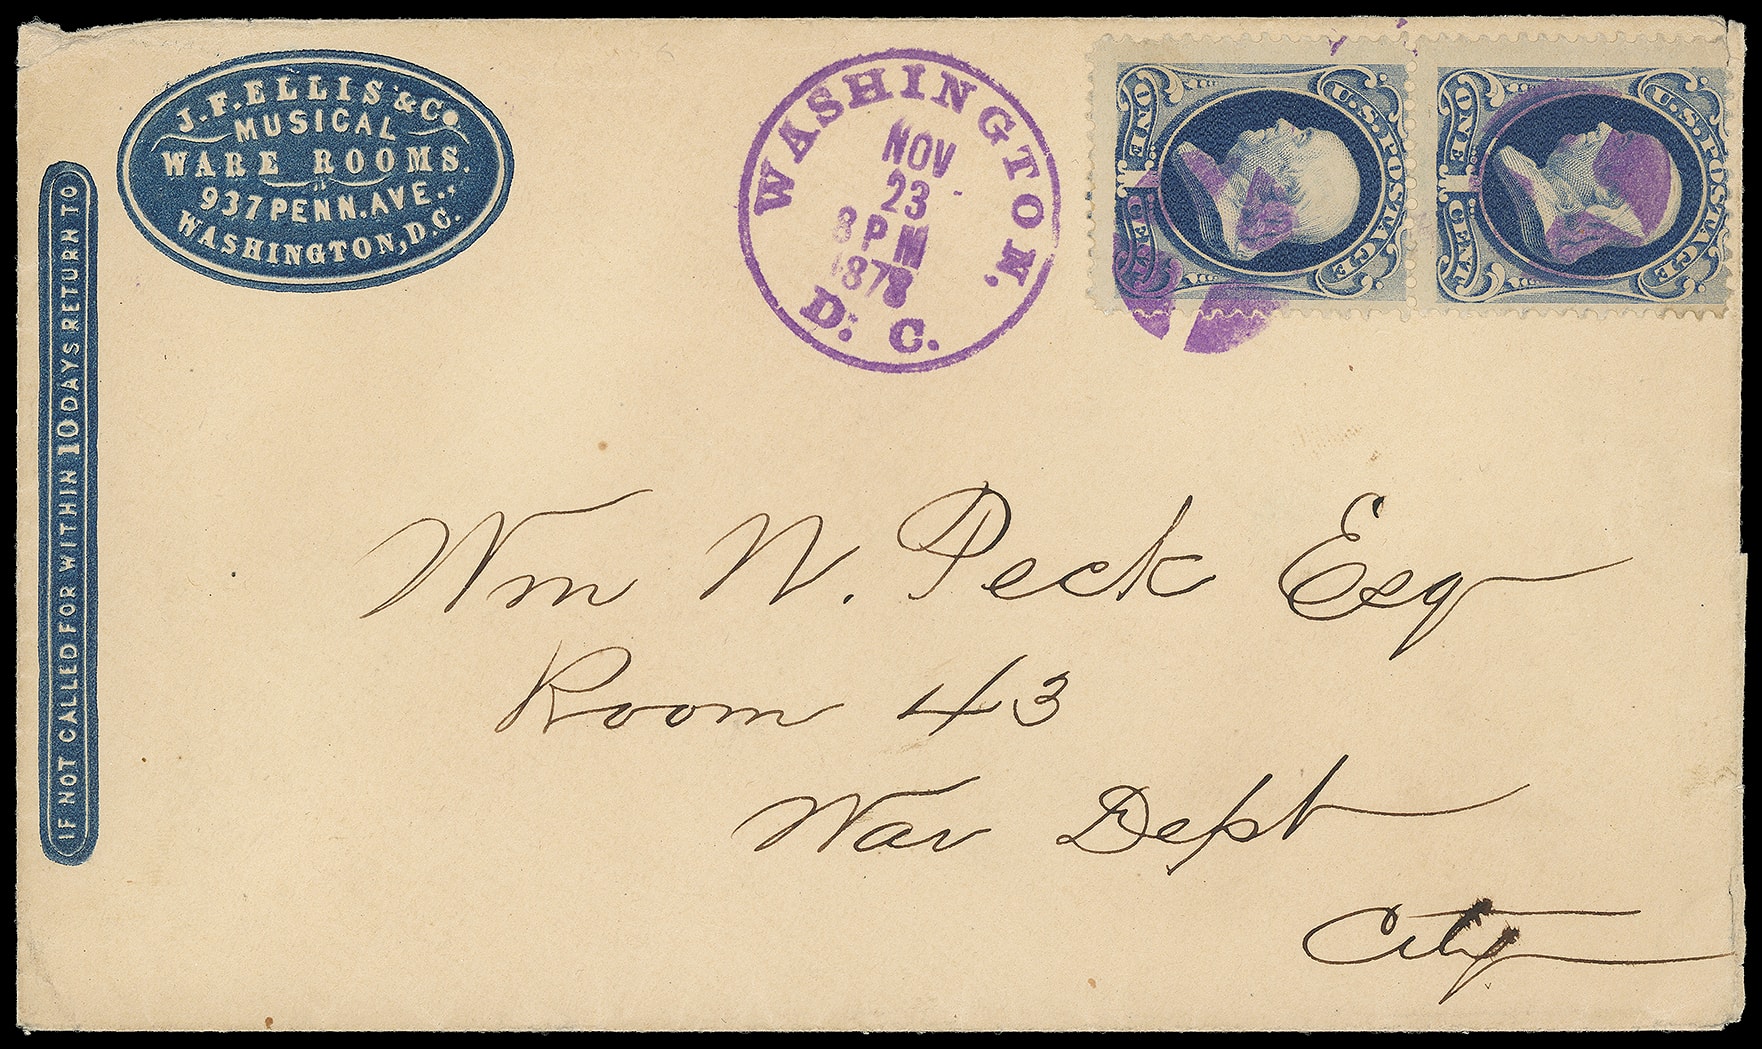 J. F. ELLIS & Co.
MUSICAL
WARE ROOMS.
937 PENN. AVE.
WASHINGTON, D.C.
IF NOT CALLED FOR WITHIN 10 DAYS RETURN TO
WASHINGTON,
NOV
23
8 PM
1878
D. C.
U.S. POSTAGE
ONE 1 CENT
U.S. POSTAGE
ONE 1 CENT
Wm W. Peck Esq
Room 43
War Dept
City